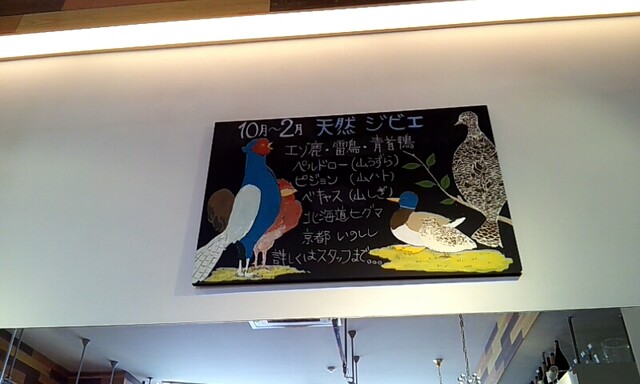 10月〜2月 天然 ジビエ
エゾ鹿・雷鳥・青首鴨
ペルドロー(山うずら)
ピジョン (山ハト)
ベキャス (山しぎ)
北海道ヒグマ
京都 いのしし
詳しくはスタッフまで...